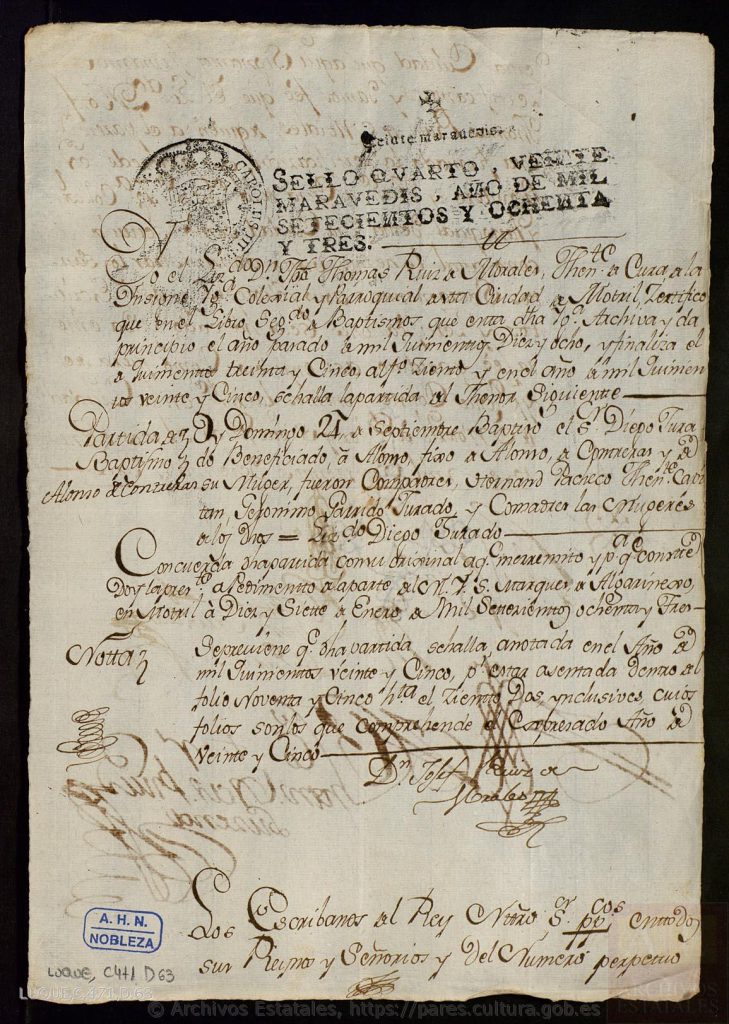 Veinte maravedis.
SELLO QVARTO, VEINTE
MARAVEDIS, AÑO DE MIL
SETECIENTOS Y OCHENTA
Y TRES.
CAROLUS III
Yo el Lizdo Dn Thomas Ruiz de Morales, Thente de Cura de la
Insigne Yga Colegial y Parroquial de esta Ciudad de Motril, Zertifico
que en el Libro Segdo de Baptismos, que en esta dha Yga Archiva, y da
principio el año pasado de mil Quinientos Diez y ocho, y finaliza el
de Quinientos treinta y Cinco, al fo Ziento y en el año de mil Quinien
tos veinte y Cinco, se halla la partida del Thenor Siguiente
Partida de
Baptismo
Alonso de Contreras
Domingo 24 de Septiembre Baptizó el Sr Diego Jura
do Beneficiado, à Alonso, fixo de Alonso, de Contreras y de
su Muger, fueron Compadres, Hernand Pacheco Thente Capi
tan, Geronimo Garrido Jurado, y Comadres las Mugeres
de los Dhos = Lizdo Diego Jurado
Concuerda dha partida con su original a qe me remito y pa qe conste
Doy la preste a Pedimento de la parte del M. Y. S. Marques de Algarinejo,
en Motril à Diez y Siette de Enero de Mil Setecientos ochenta y Tres
Notta
Se previene qe dha partida se halla, anotada en el Año de
mil Quinientos Veinte y Cinco, pr estar asentada dentro del
folio Noventa y Cinco hta el Ziento Dos ynclusive, cuios
folios son los que comprehende el Expresado Año de
Veinte y Cinco
Dn Josef Ruiz de
Morales
Los Escribanos del Rey Ntro Sr ppcos en todos
sus Reinos y Señorios y del Numero perpetuo
A. H. N.
NOBLEZA
LUQUE, C471 D63
LUQUE,C.471,D.63
© Archivos Estatales, https://pares.cultura.gob.es
ARCHIVOS
ESTATALES